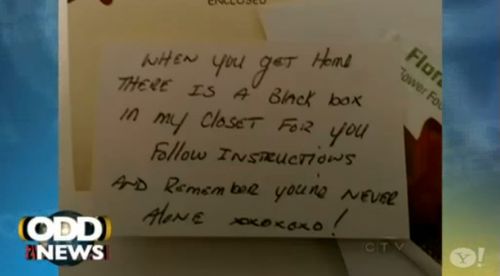 ENCLOSED
WHEN YOU GET Home
THERE IS A Black box
IN MY CLOSET FOR YOU
Follow INSTRUCTIONS
AND Remember YOU'RE NEVER
ALONE xoxoxoxo!
Flor
ower Fou
ODD
NEWS
CTV
Y!